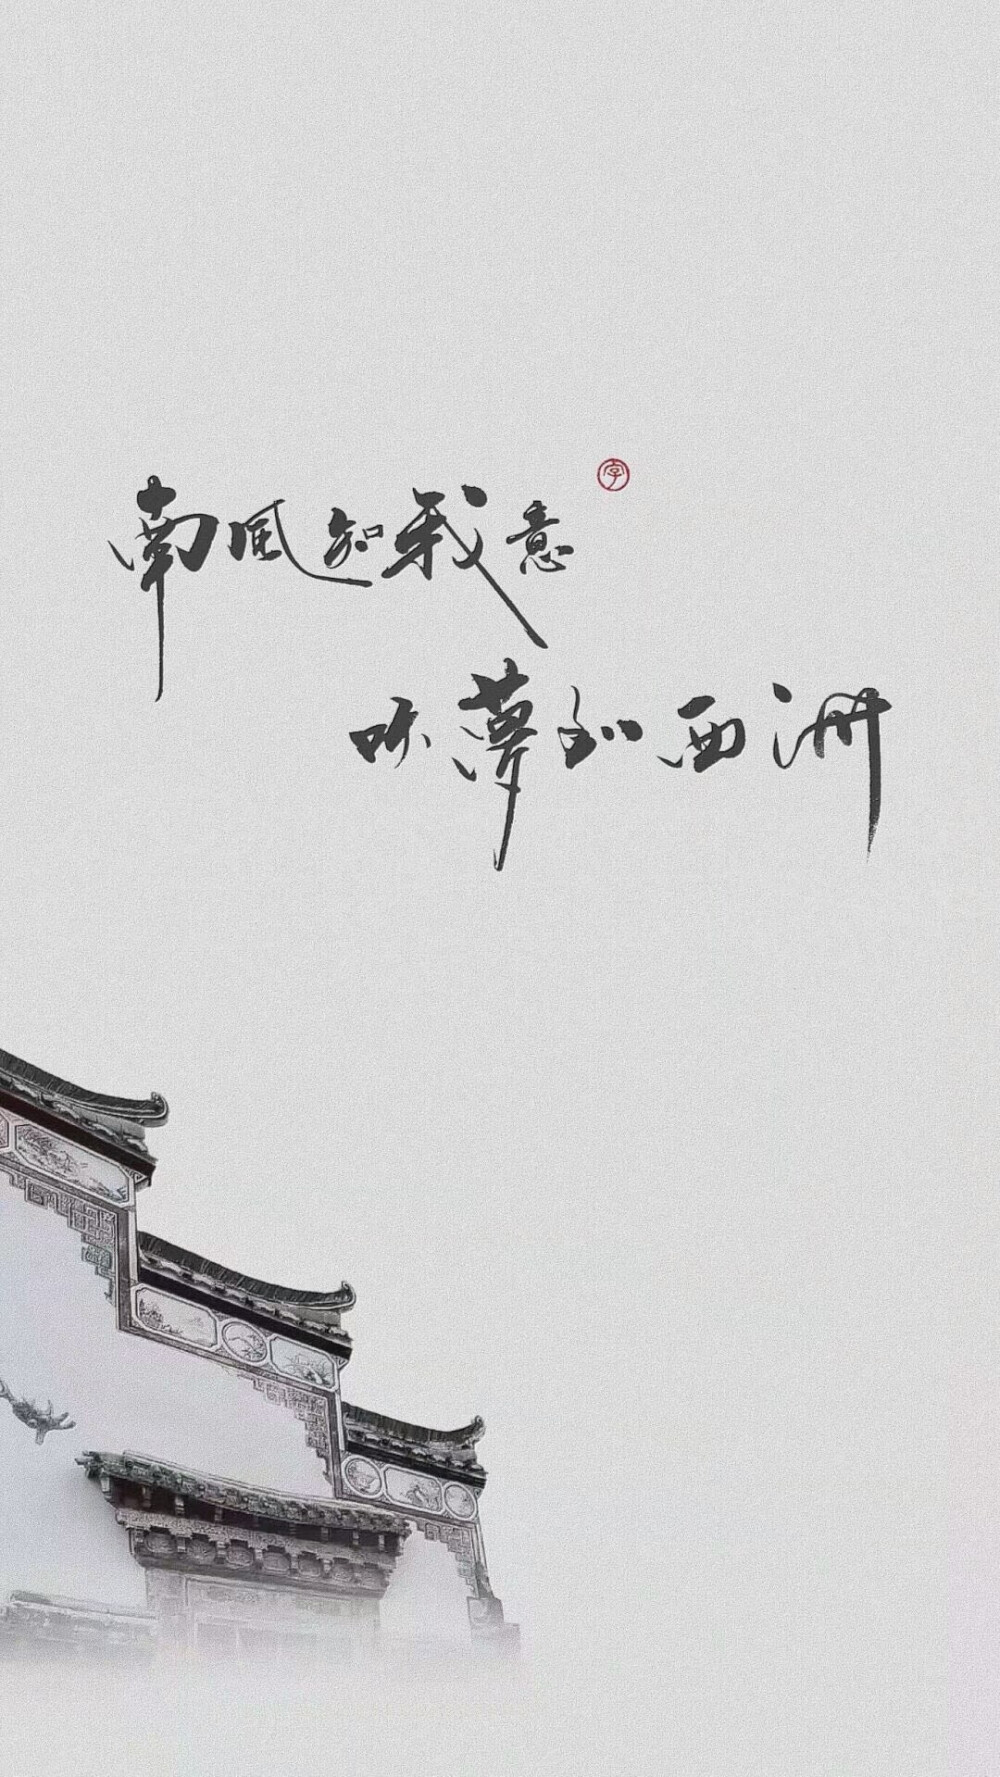 南风知我意
吹梦到西洲
字